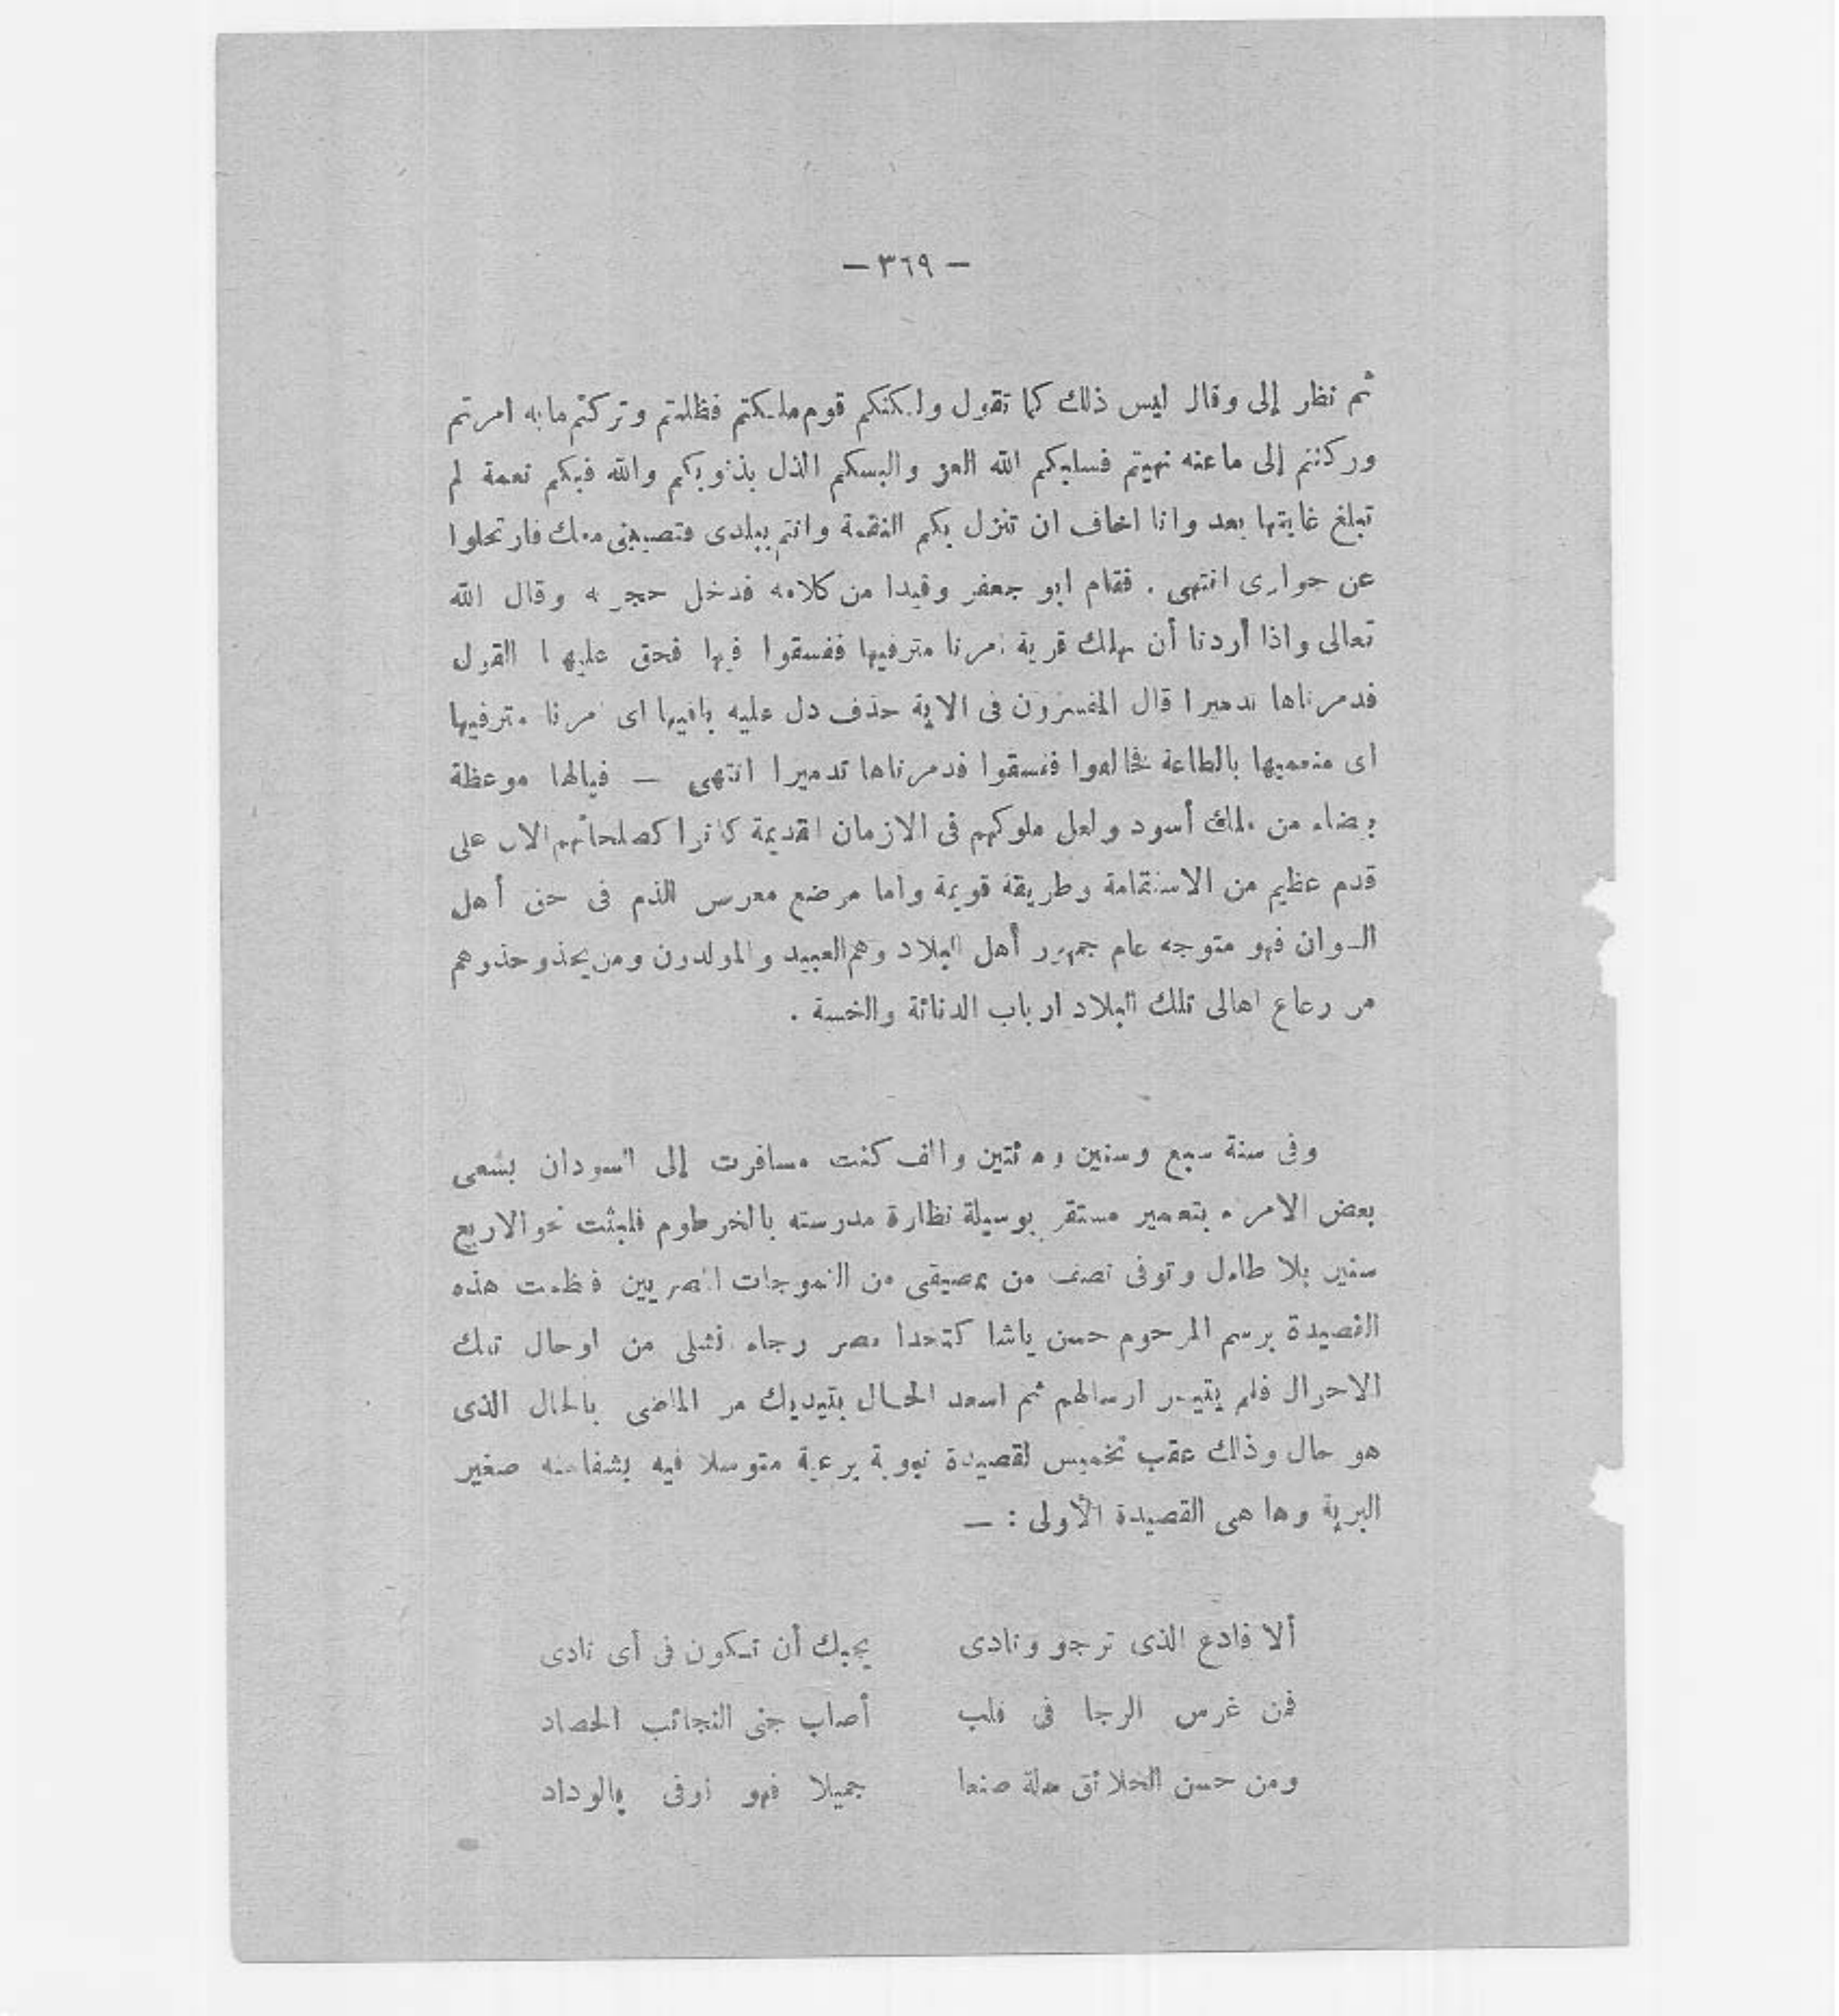 — ٣٦٩ —
ثم نظر إلى وقال ليس ذلك كما تقول ولكنكم قوم ملكتم فظلمتم وتركتم ما به امرتم
وركنتم إلى ما عنه نهيتم فسلبكم الله العز والبسكم الذل بذنوبكم والله فيكم نعمة لم
تبلغ غايتها بعد وانا اخاف ان تنزل بكم النقمة وانتم ببلدى فتصيبنى معك فارتحلوا
عن جوارى انتهى . فقام ابو جعفر وقيدا من كلامه فدخل حجره وقال الله
تعالى واذا أردنا أن نهلك قرية أمرنا مترفيها ففسقوا فيها فحق عليها القول
فدمرناها تدميرا قال المفسرون فى الاية حذف دل عليه باقيها اى أمرنا مترفيها
اى منعميها بالطاعة فخالفوا ففسقوا فدمرناها تدميرا انتهى — فيالها موعظة
بيضاء من ملك أسود ولعل ملوكهم فى الازمان القديمة كانوا كصلحائهم الان على
قدم عظيم من الاستقامة وطريقة قويمة واما موضع معرض الذم فى حق أهل
السوان فهو متوجه عام جمهور أهل البلاد وهم العبيد والمولدون ومن يحذو حذوهم
من رعاع اهالى تلك البلاد ارباب الدنائة والخسة .
وفى سنة سبع وستين ومئتين والف كنت مسافرت إلى السودان بسعى
بعض الامراء بتعمير مستقر بوسيلة نظارة مدرسته بالخرطوم فلبثت نحو الاربع
سنين بلا طائل وتوفى نصف من من المصريين فنظمت هذه
القصيدة برسم المرحوم حسن باشا كتخدا مصر رجاء نشلى من اوحال تلك
الاحوال فلم يتيسر ارسالهم ثم اسعد الحال بتبديك مر الماضى بالحال الذى
هو حال وذلك عقب تخميس لقصيدة نبوية برعية متوسلا فيه بشفاعته صغير
البرية وها هى القصيدة الأولى : —
ألا فادع الذى ترجو ونادى يجبك أن تكون فى أى نادى
فمن غرس الرجا فى قلب أصاب جنى النجائب الحصاد
ومن حسن الخلائق صنعا جميلا فهو أوفى بالوداد